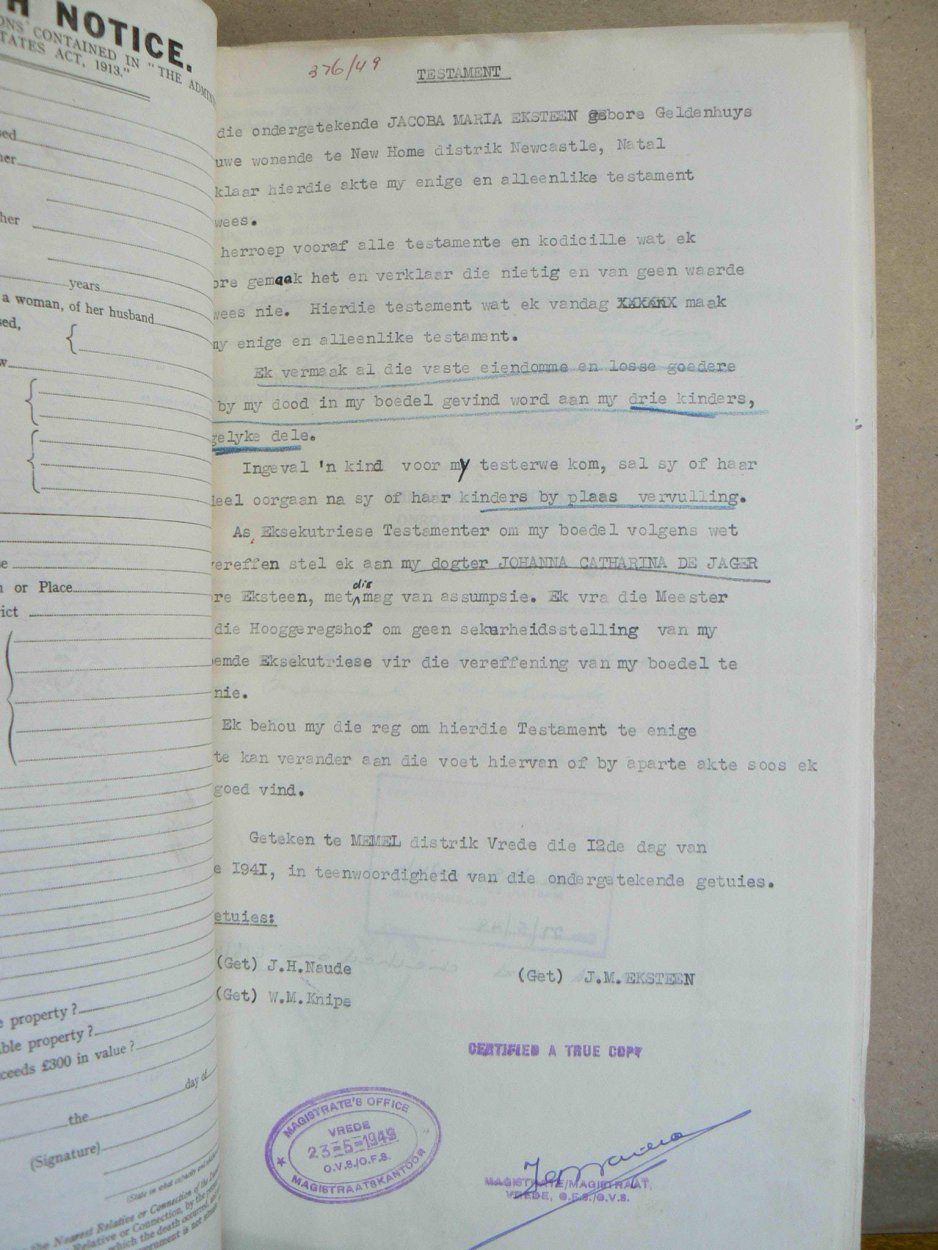 H NOTICE.
ONS CONTAINED IN "THE ADMIN
TATES ACT, 1913."
sed
her
her
years
a woman, of her husband
sed,
w
e
n or Place
ict
e property?
ble property?
ceeds £300 in value?
day of
the
(Signature)
(State in what capacity and
he Nearest Relative or Connection of the
Relative or Connection, by the
which the death occurred,
ernment is not
376/49
TESTAMENT
die ondergetekende JACOBA MARIA EKSTEEN gebore Geldenhuys
uwe wonende te New Home distrik Newcastle, Natal
klaar hierdie akte my enige en alleenlike testament
wees.
herroep vooraf alle testamente en kodicille wat ek
ore gemaak het en verklaar die nietig en van geen waarde
wees nie. Hierdie testament wat ek vandag XXXXXX maak
my enige en alleenlike testament.
Ek vermaak al die vaste eiendomme en losse goedere
by my dood in my boedel gevind word aan my drie kinders,
gelyke dele.
Ingeval 'n kind voor my testerwe kom, sal sy of haar
deel oorgaan na sy of haar kinders by plaas vervulling.
As Eksekutriese Testamenter om my boedel volgens wet
vereffen stel ek aan my dogter JOHANNA CATHARINA DE JAGER
re Eksteen, met die mag van assumpsie. Ek vra die Meester
die Hooggeregshof om geen sekurheidsstelling van my
oemde Eksekutriese vir die vereffening van my boedel te
nie.
Ek behou my die reg om hierdie Testament te enige
te kan verander aan die voet hiervan of by aparte akte soos ek
goed vind.
Geteken te MEMEL distrik Vrede die I2de dag van
e I94I, in teenwoordigheid van die ondergetekende getuies.
etuies:
(Get) J.H.Naude
(Get) J.M.EKSTEEN
(Get) W.M.Knipe
CERTIFIED A TRUE COPY
MAGISTRATE'S OFFICE
VREDE
23-5-1949
O.V.S./O.F.S.
MAGISTRAATSKANTOOR
MAGISTRATE/MAGISTRAAT,
VREDE, O.F.S./O.V.S.